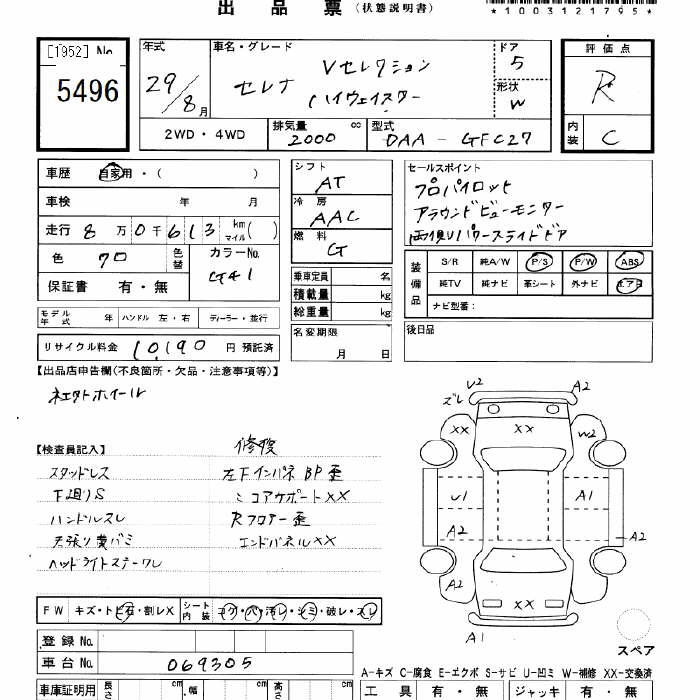 出品票 (状態説明書)
*1003121795*
[1952] No 5496
年式 29/8月
車名・グレード セレナ Vセレクション ハイウェイスター
ドア 5
形状 W
評価点 R
内装 C
2WD・4WD
排気量 2000 cc
型式 DAA-GFC27
車歴 自家用・( )
車検 年 月
走行 8万0千613 km マイル( )
色 クロ 色替 カラーNo. G41
保証書 有・無
シフト AT
冷房 AAC
燃料 G
乗車定員 名
積載量 kg
総重量 kg
セールスポイント
プロパイロット
アラウンドビューモニター
両側パワースライドドア
装備品 S/R 純A/W P/S P/W ABS
純TV 純ナビ 革シート 外ナビ エアB
ナビ型番:
モデル年式 年 ハンドル 左・右 ディーラー・並行
名変期限 月 日
後日品
リサイクル料金 10,190 円 預託済
【出品店申告欄(不良箇所・欠品・注意事項等)】
ホイール
【検査員記入】
修復
スタッドレス 左下インパネBP歪
下廻りS ミコアサポートXX
ハンドルスレ Rフロアー歪
天張り黄バミ エンドパネルXX
ヘッドライトステーワレ
V2 ズレ A2
XX XX W2
U1 A1
A2 A2
A2 XX A2
A1
スペア
FW キズ・トビ石・割レX シート内装 コゲ・穴・汚レ・シミ・破レ・スレ
登録 No.
車台 No. 069305
A-キズ C-腐食 E-エクボ S-サビ U-凹ミ W-補修 XX-交換済
車庫証明用 長さ cm 幅 cm 高さ cm
工具 有・無 ジャッキ 有・無